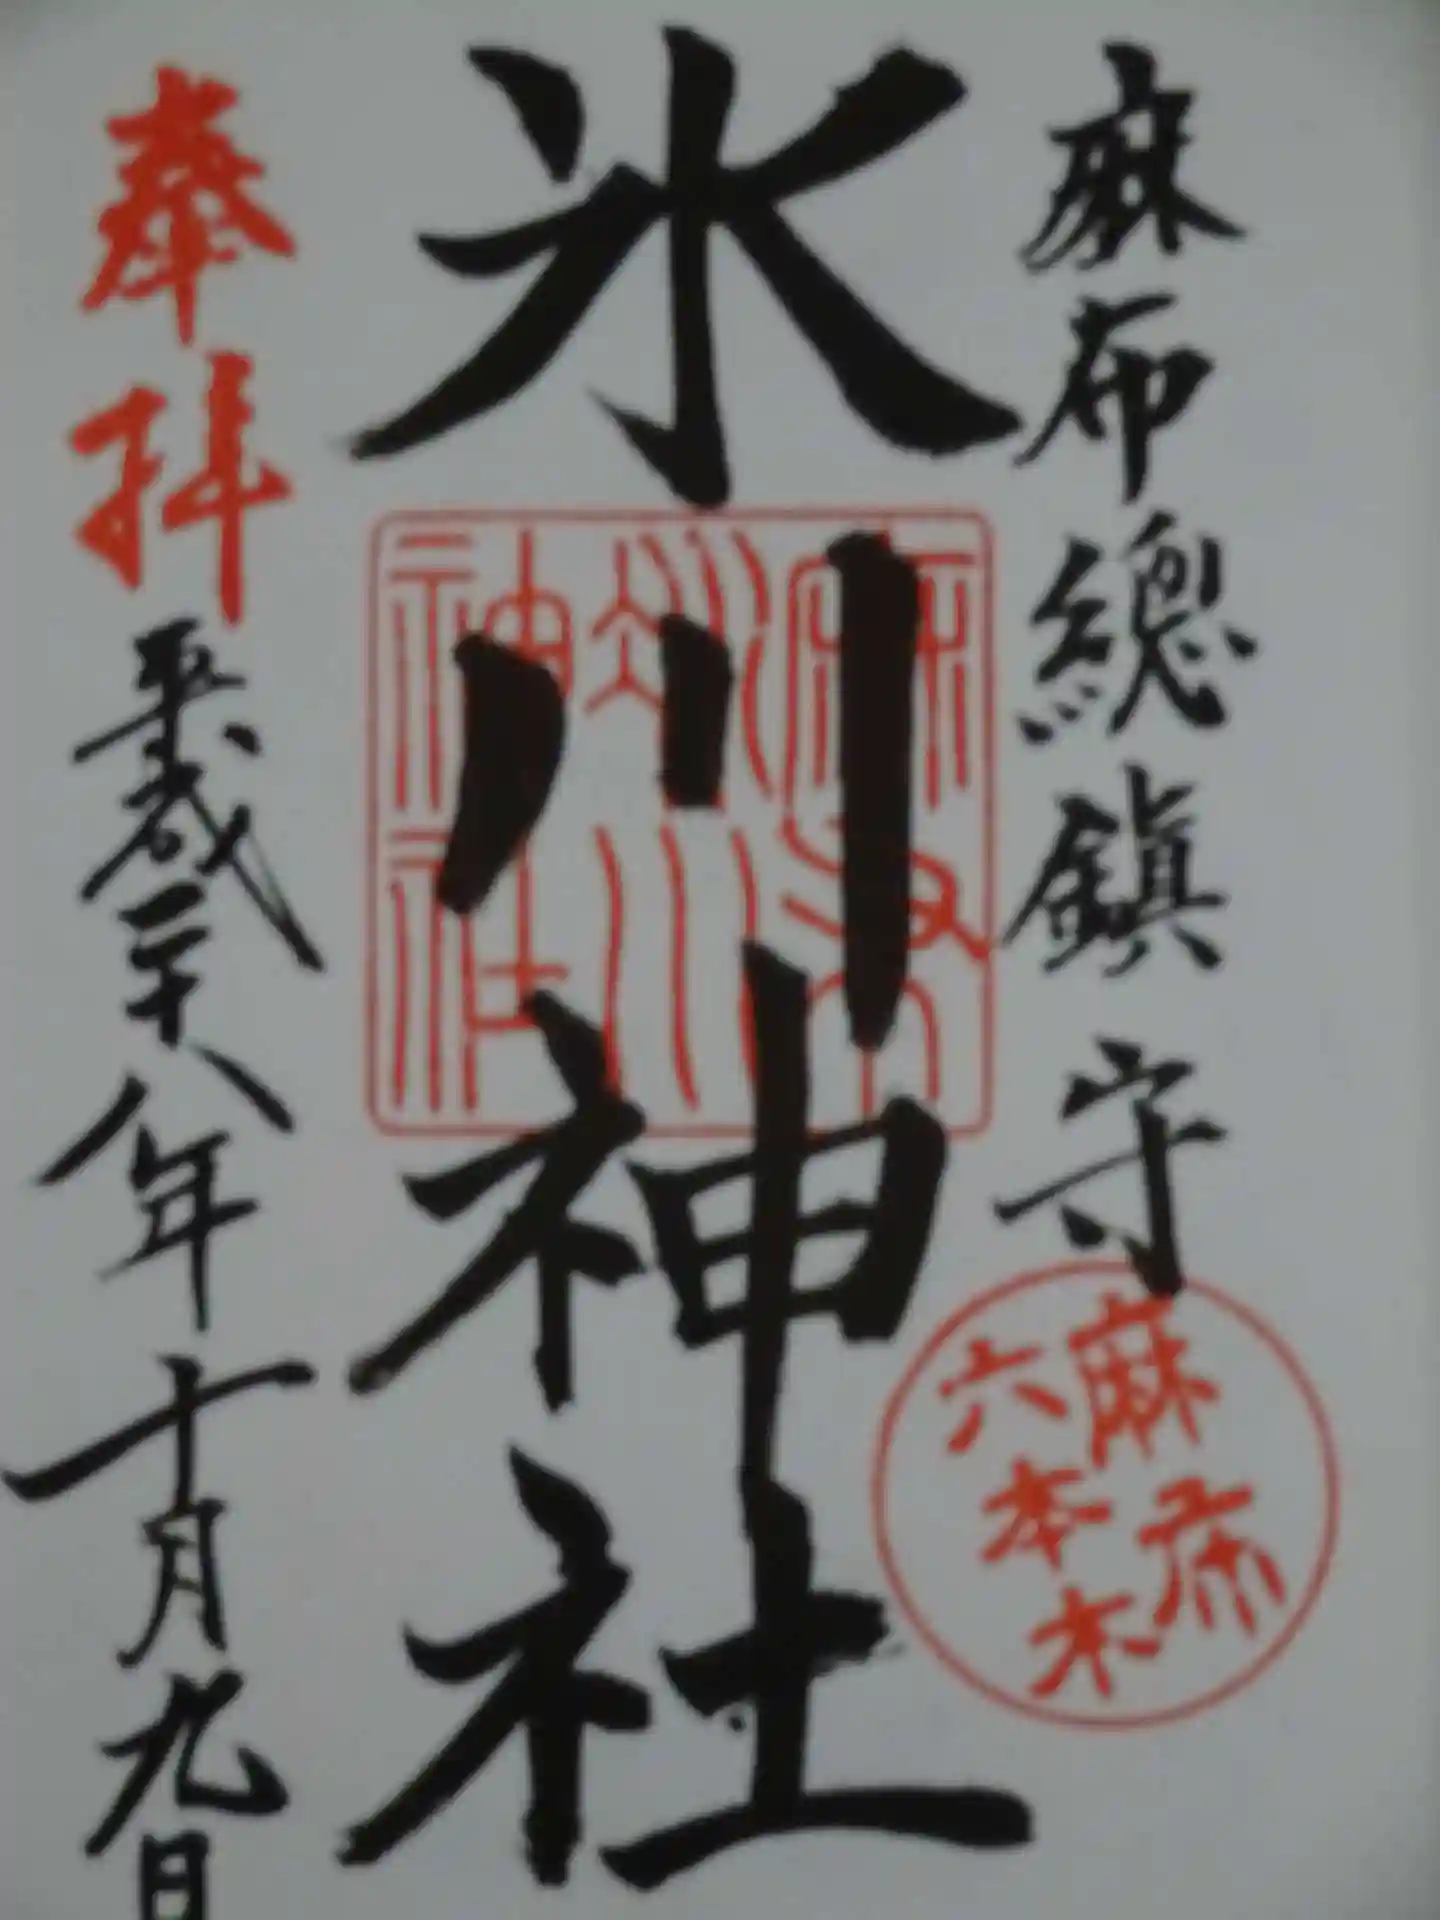 麻布總鎮守
麻布
六本木
氷川神社
麻布
氷川
神社
奉拝
平成二十八年十月九日